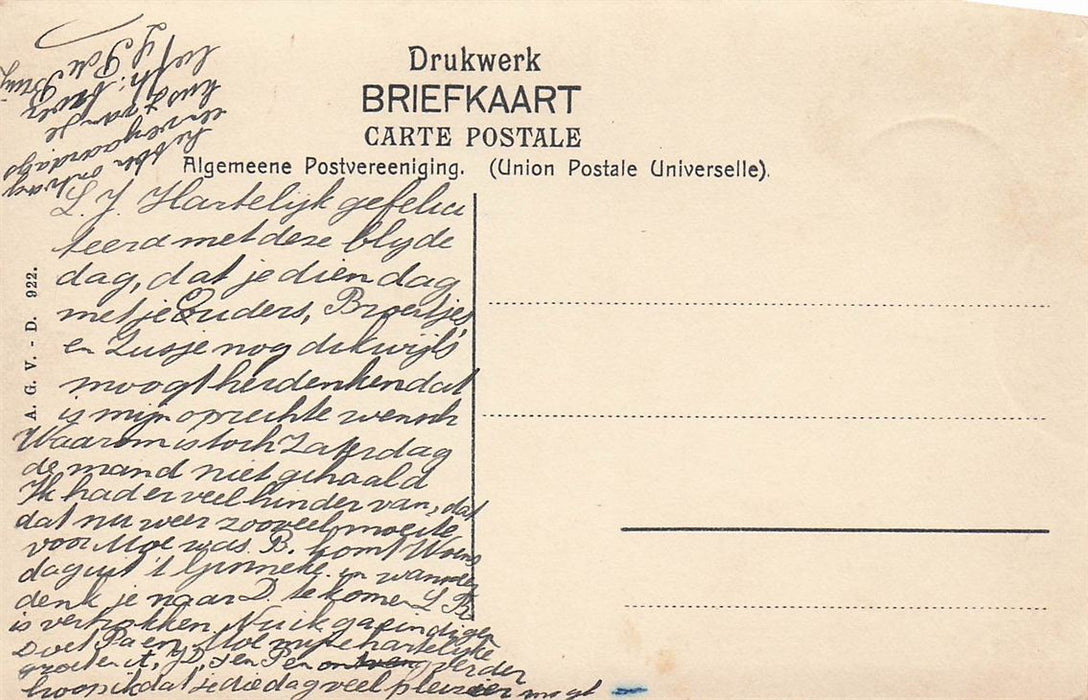 Drukwerk
BRIEFKAART
CARTE POSTALE
Algemeene Postvereeniging. (Union Postale Universelle).
A. G. V. - D. 922.
L. J. Hartelijk gefelici
teerd met deze blyde
dag, dat je dien dag
met je Ouders, Broertjes
en Zusje nog dikwijls
moogt herdenken dat
is mijn oprechte wensch
Waarom is toch Zaterdag
de mand niet gehaald
Ik had er veel hinder van, dat
dat nu weer zooveel moeite
voor Moe was. B. komt Woens
dag uit 't Ginneke en wanneer
denk je naar D. te komen L. B.
is vertrokken. Nu ik ga eindigen
Doet Pa en Moe mijne hartelijke
groeten A, J D, en P en verder
hoop ik dat je die dag veel pleizier moogt
hebben ontvang
en vergaardag
kus van je
lief
P de Bruij